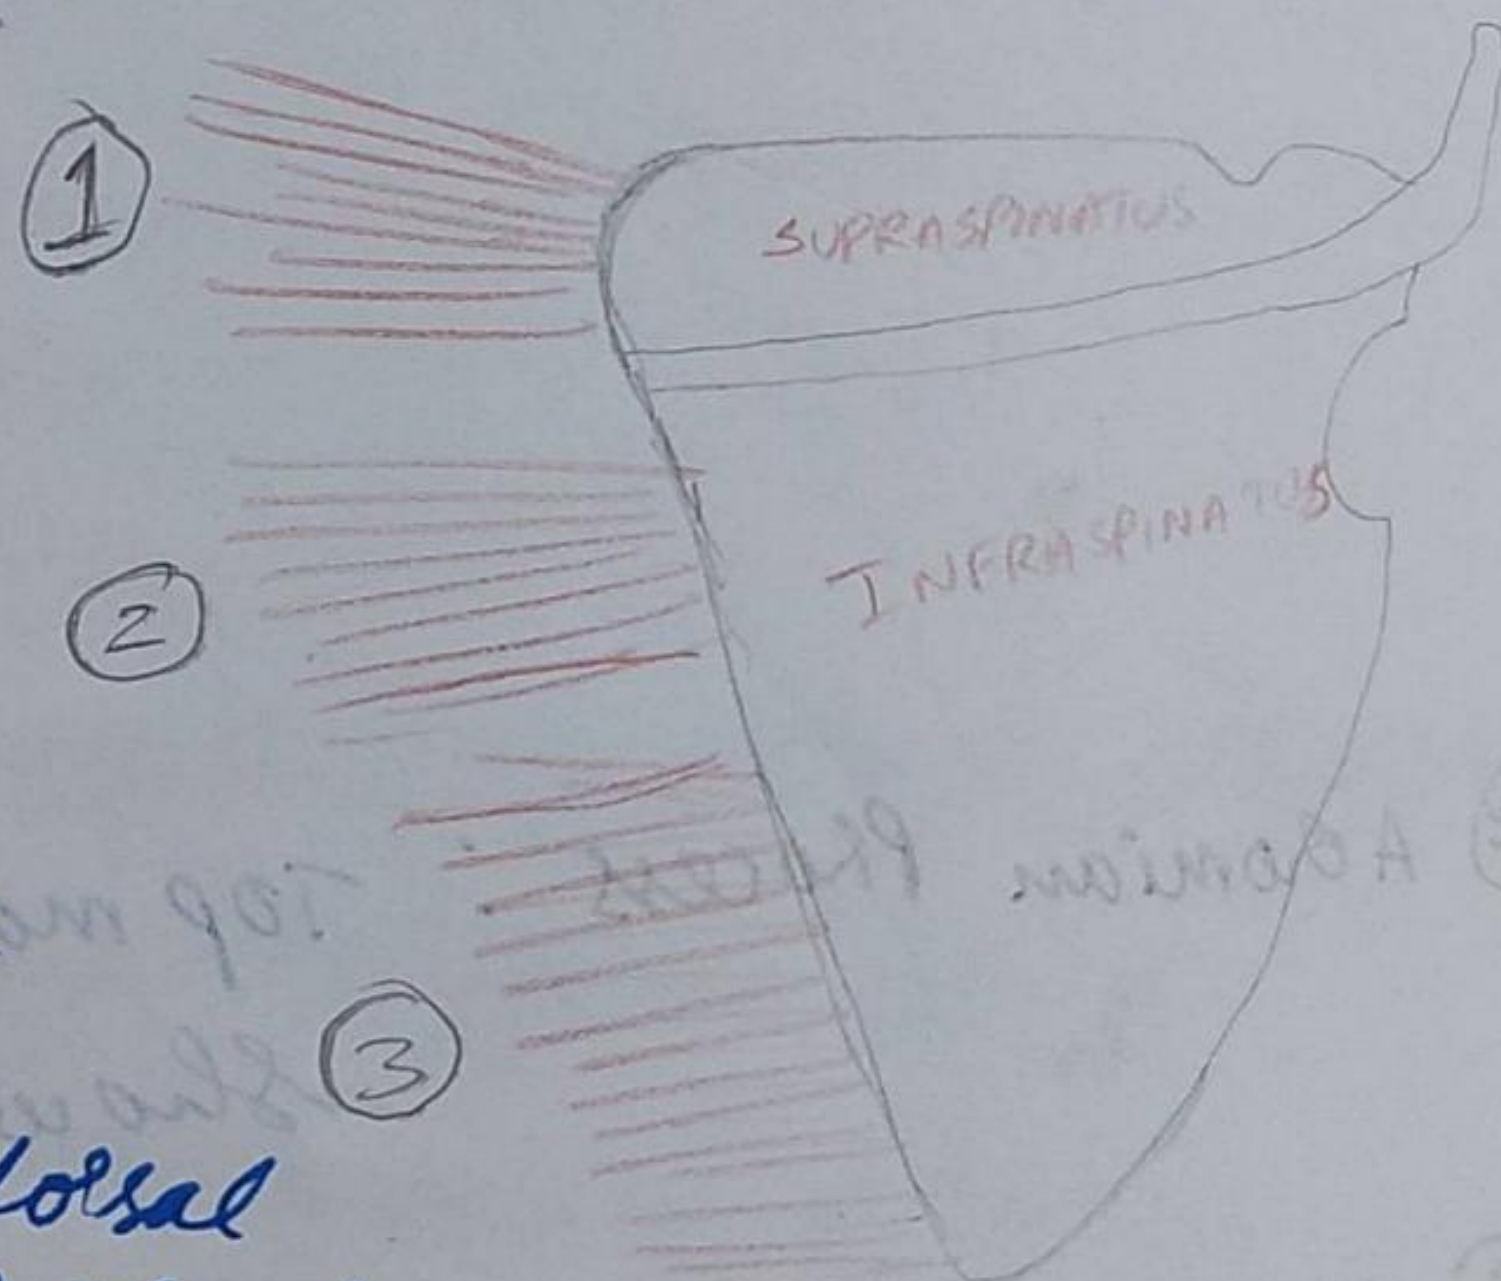 1
SUPRASPINATUS
INFRASPINATUS
2
3
dorsal